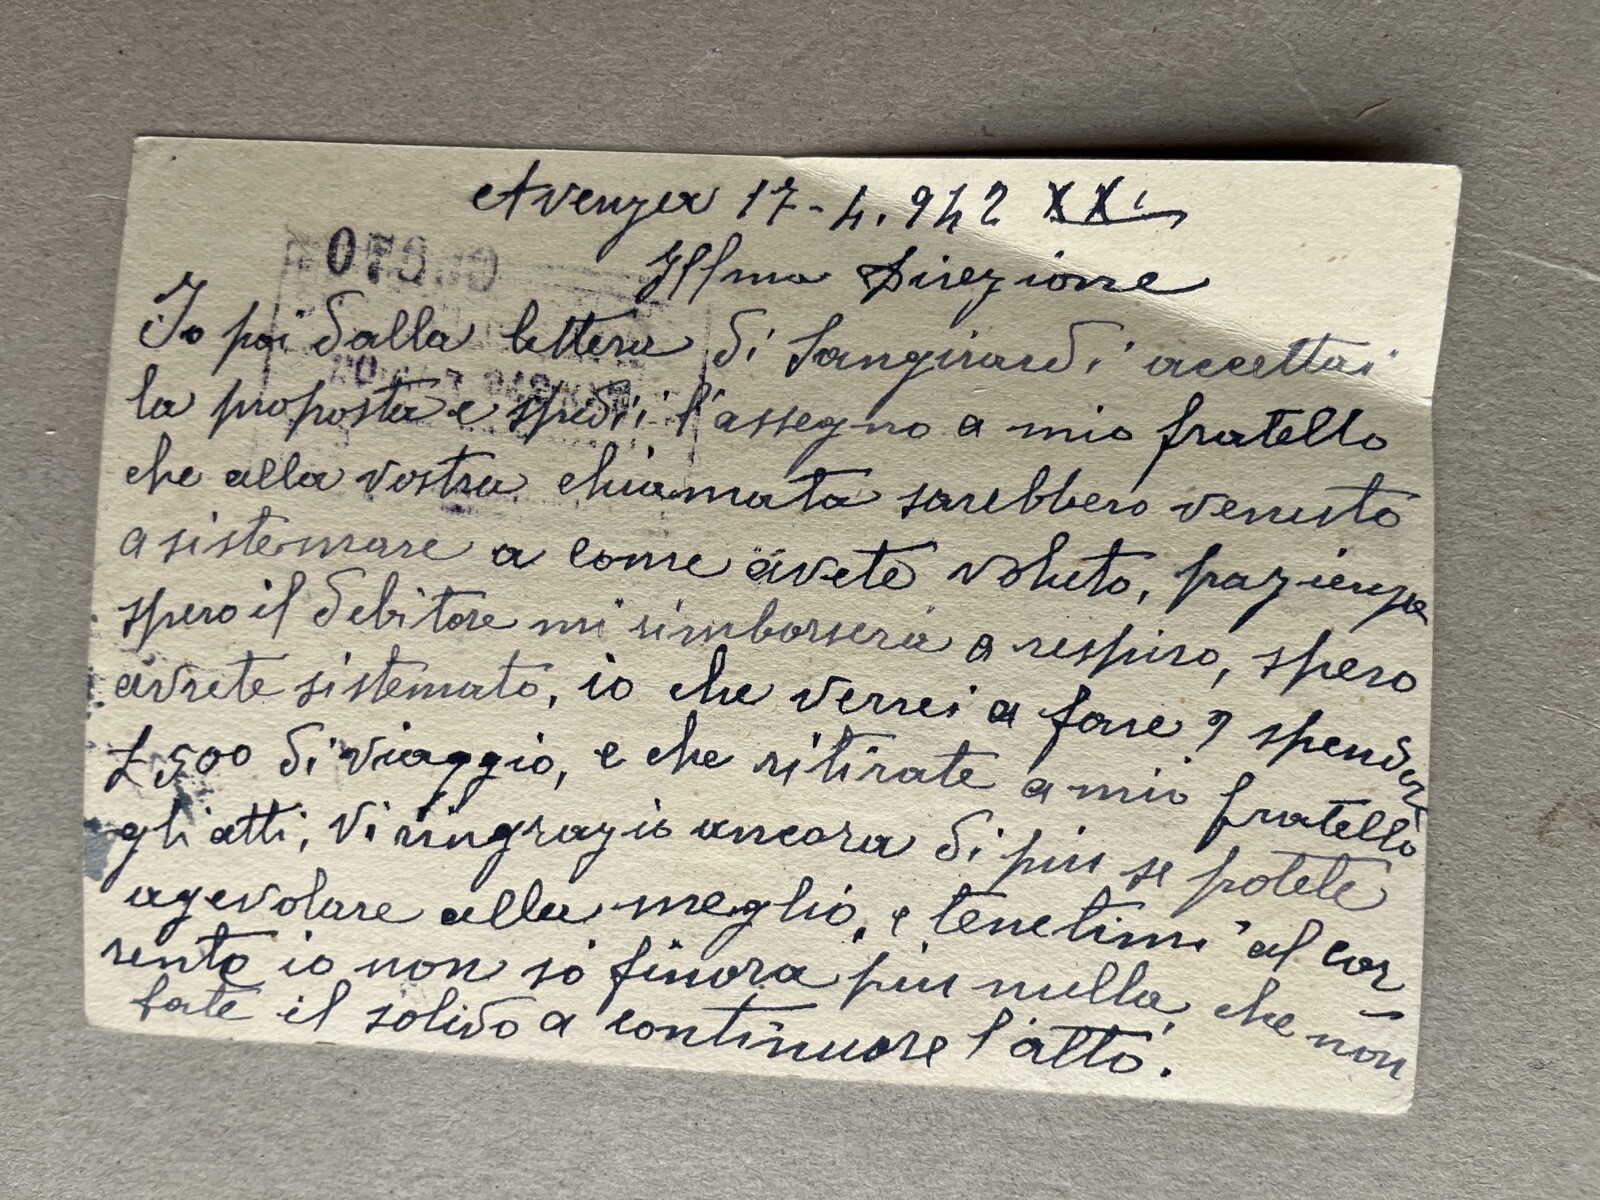 Avenza 17-4.942 XXI
Illma Direzione
Io poi dalla lettera di Sangirardi accettai
la proposta e spedii l'assegno a mio fratello
che alla vostra chiamata sarebbero venuto
a sistemare a come avete voluto, pazienza
spero il debitore mi rimborserà a respiro, spero
avrete sistemato, io che verrei a fare? spender
£ 500 di viaggio, e che ritirate a mio fratello
gli atti, Vi ringrazio ancora di piu se potete
agevolare alla meglio, e tenetimi al cor
rente io non so finora piu nulla, che non
fate il solido a continuare l'atto.